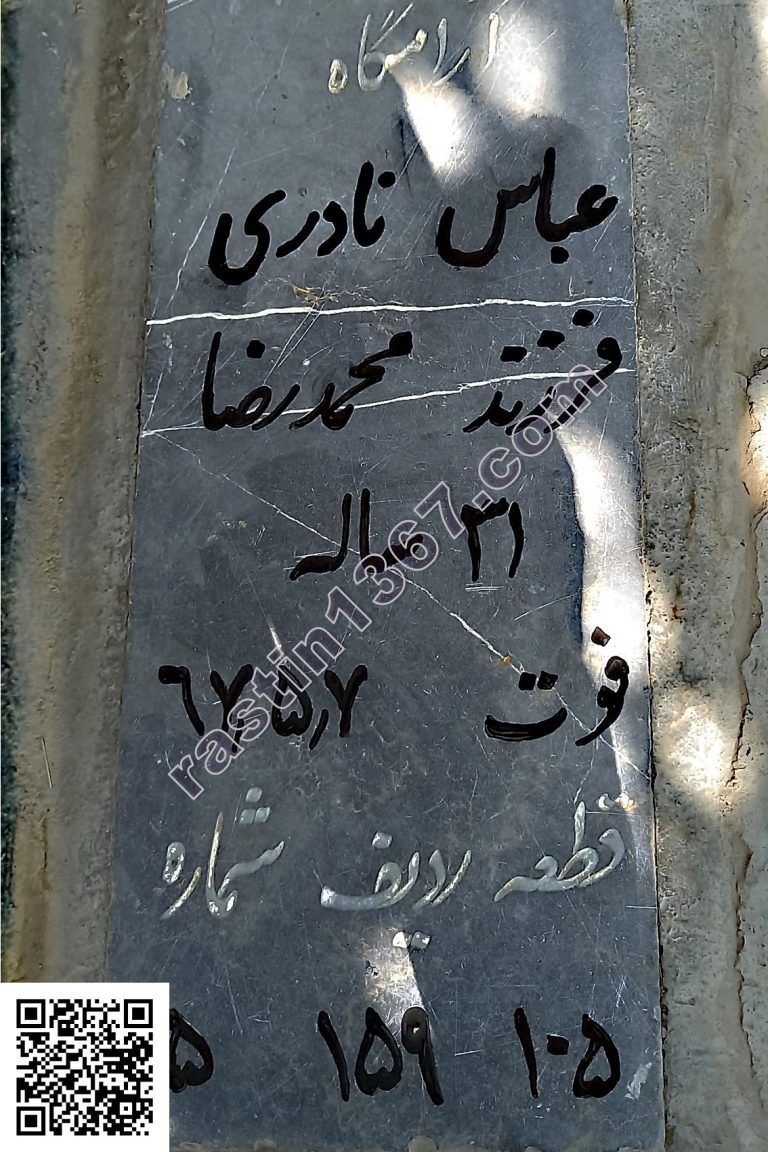 ارامگاه
عباس نادری
فرزند محمدرضا
۳۱ ساله
فوت ۶۷٫۵٫۷
قطعه ردیف شماره
۱۰۵ ۱۵۹ ۵
rastin1367.com